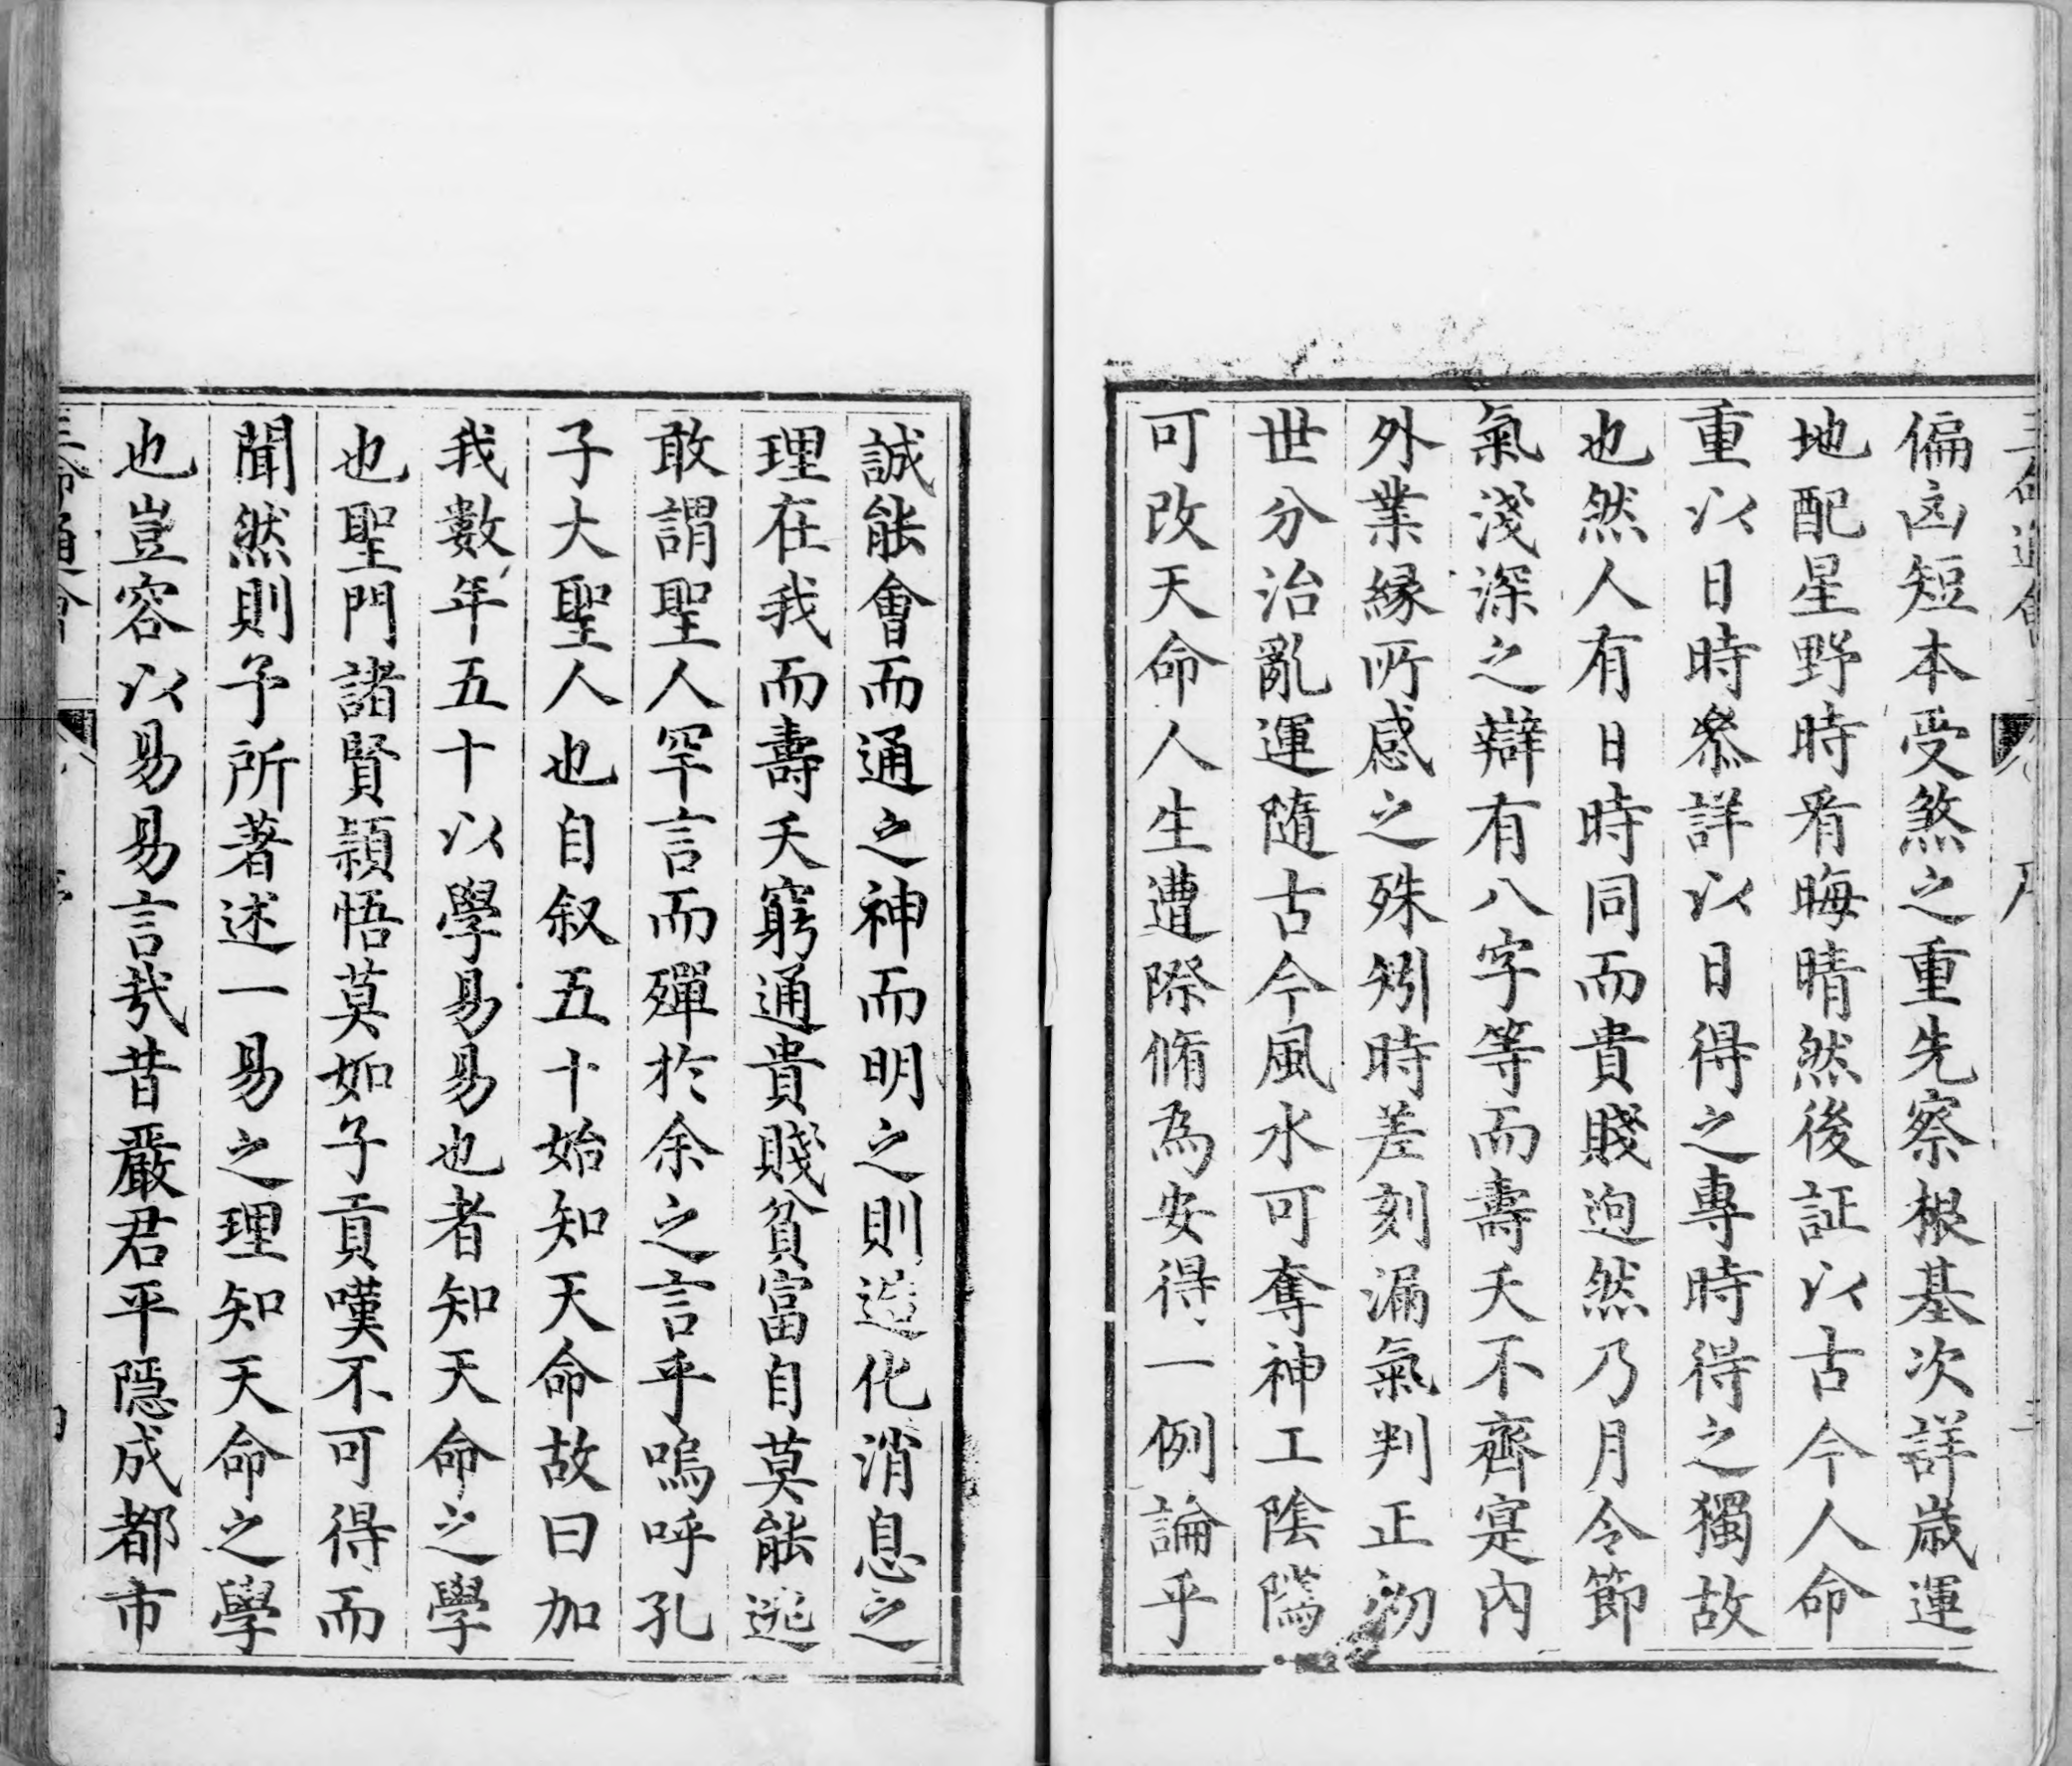 偏凶短本受煞之重先察根基次詳歳運
地配星野時看晦晴然後証以古今人命
重以日時叅詳以日得之專時得之獨故
也然人有日時同而貴賤逈然乃月令節
氣淺深之辯有八字等而壽夭不齊寔内
外業縁所感之殊矧時差刻漏氣判正初
世分治亂運隨古今風水可奪神工陰隲
可改天命人生遭際脩為安得一例論乎
誠能會而通之神而明之則造化消息之
理在我而壽夭窮通貴賤貧富自莫能逃
敢謂聖人罕言而殫於余之言乎嗚呼孔
子大聖人也自叙五十始知天命故曰加
我數年五十以學易易也者知天命之學
也聖門諸賢穎悟莫如子貢嘆不可得而
聞然則予所著述一易之理知天命之學
也豈容以易易言㢤昔嚴君平隱成都市